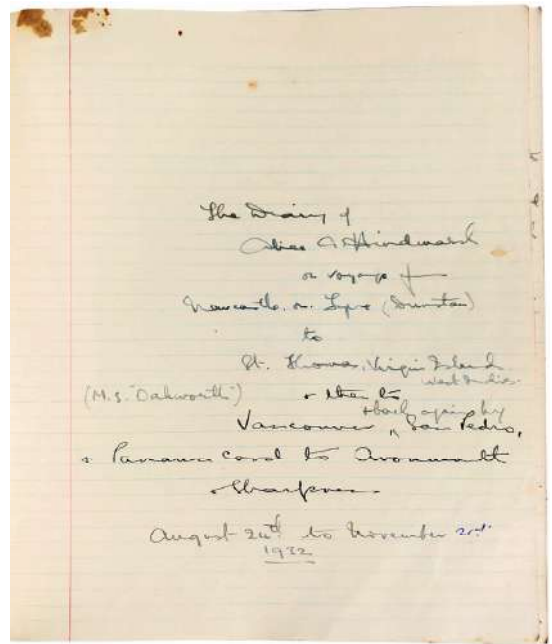 The Diary of
Alice A Hindmarsh
on voyage from
Newcastle. on. Tyne (Dunston)
to
St. Thomas, Virgin Islands
West Indies.
(M.S. "Oakworth") & then to
& back again by
Vancouver ^ San Pedro,
& Panama Canal to Avonmouth
& Sharpness
August 24th to November
1932